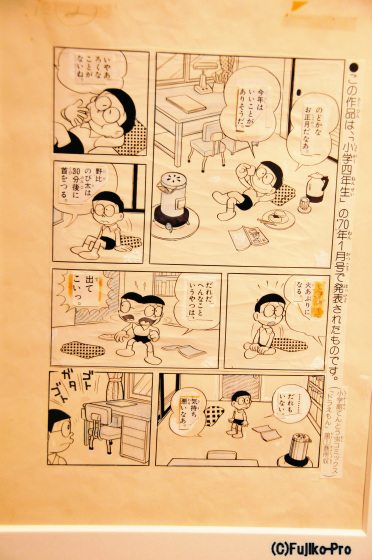 ●この作品は、「小学四年生」の'70年1月号で発表されたものです。
のどかな
お正月だなあ。
今年は
いいことが
ありそうだ。
いやあ
ろくな
ことが
ないね。
野比
のび太は
30分後に
首をつる。
火あぶりに
なる。
だれだ、
へんなこと
いうやつは。
出て
こいっ。
………
だれも
いない。
気持ち
悪いなあ。
ゴト
ガタ
ゴト
(C)Fujiko-Pro